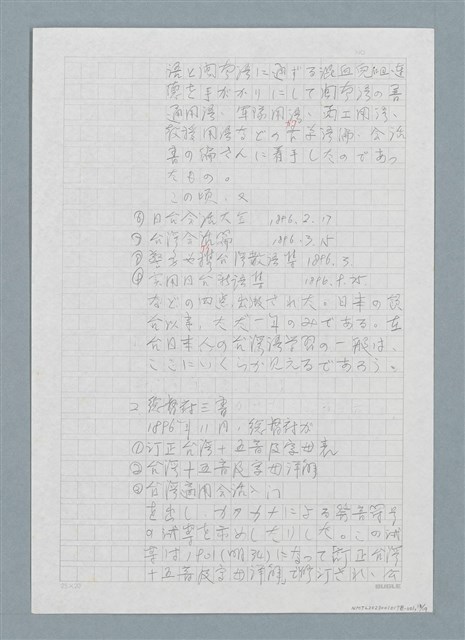 語と閩南語に通ずる
を手がかりにして閩南語の普
通用語、軍隊用語、商工用語、
教務用語などの単語編、会話
書の編さんに着手したのであっ
たもの。
この頃、又
日台会話大全 1896.2.17
台湾会話篇 1896.3.15
台湾散語集 1896.3.
実用日台新語集 1896.4.25
などの四点出版された。日本の統
治以来、たった一年のみである。在
台日本人の台湾語学習の一般は、
ここにいくらか見えるであろう。
2 総督府三書
1896年11月、総督府が
①訂正台湾十五音及字母表
②台湾十五音及字母詳解
③台湾適用会話入門
を出し、カタカナによる発音符号
の試案を求めしたりした。この試
案は1901(明34)になって訂正台湾
十五音及字母詳解で修訂され、今